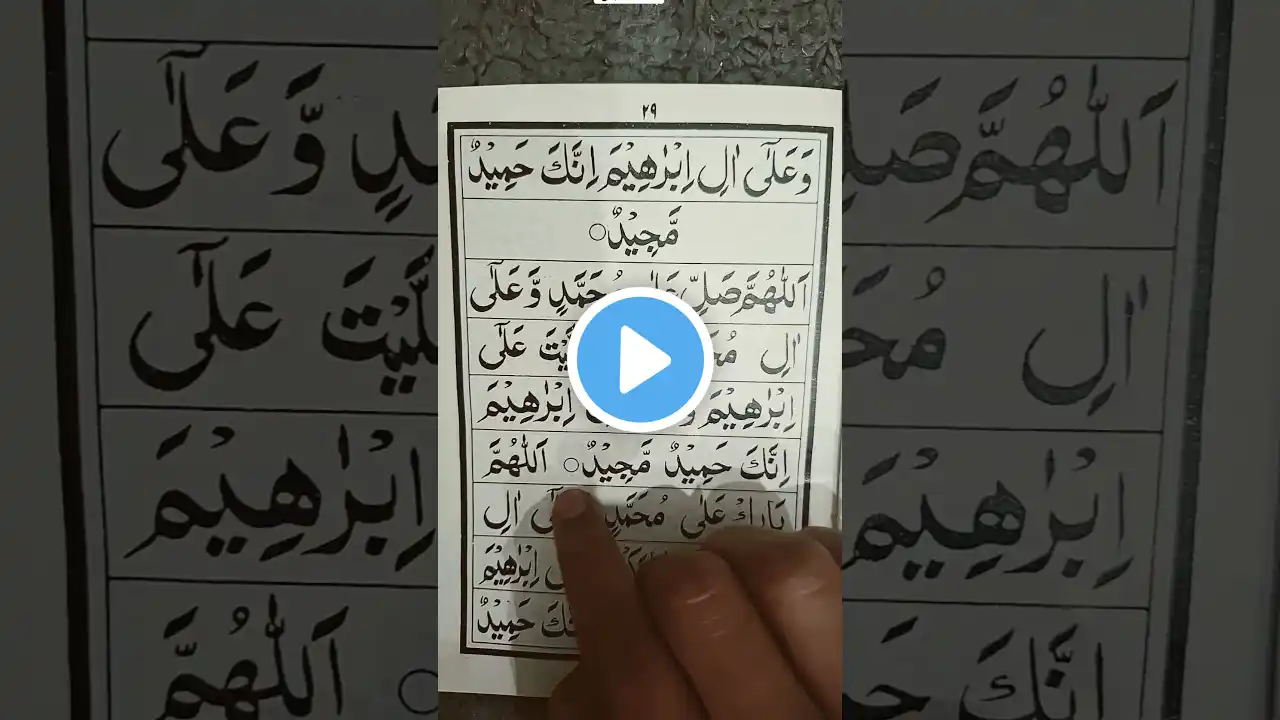 ٢٩
وَعَلٰٓى اٰلِ اِبْرٰهِيْمَ اِنَّكَ حَمِيْدٌ
مَّجِيْدٌ○
اَللّٰهُمَّ صَلِّ مُحَمَّدٍ وَّعَلٰٓى
اٰلِ عَلٰٓى
اِبْرٰهِيْمَ اِبْرٰهِيْمَ
اِنَّكَ حَمِيْدٌ مَّجِيْدٌ○ اَللّٰهُمَّ
بَارِكْ عَلٰى مُحَمَّدٍ اٰلِ
اِبْرٰهِيْمَ
حَمِيْدٌ